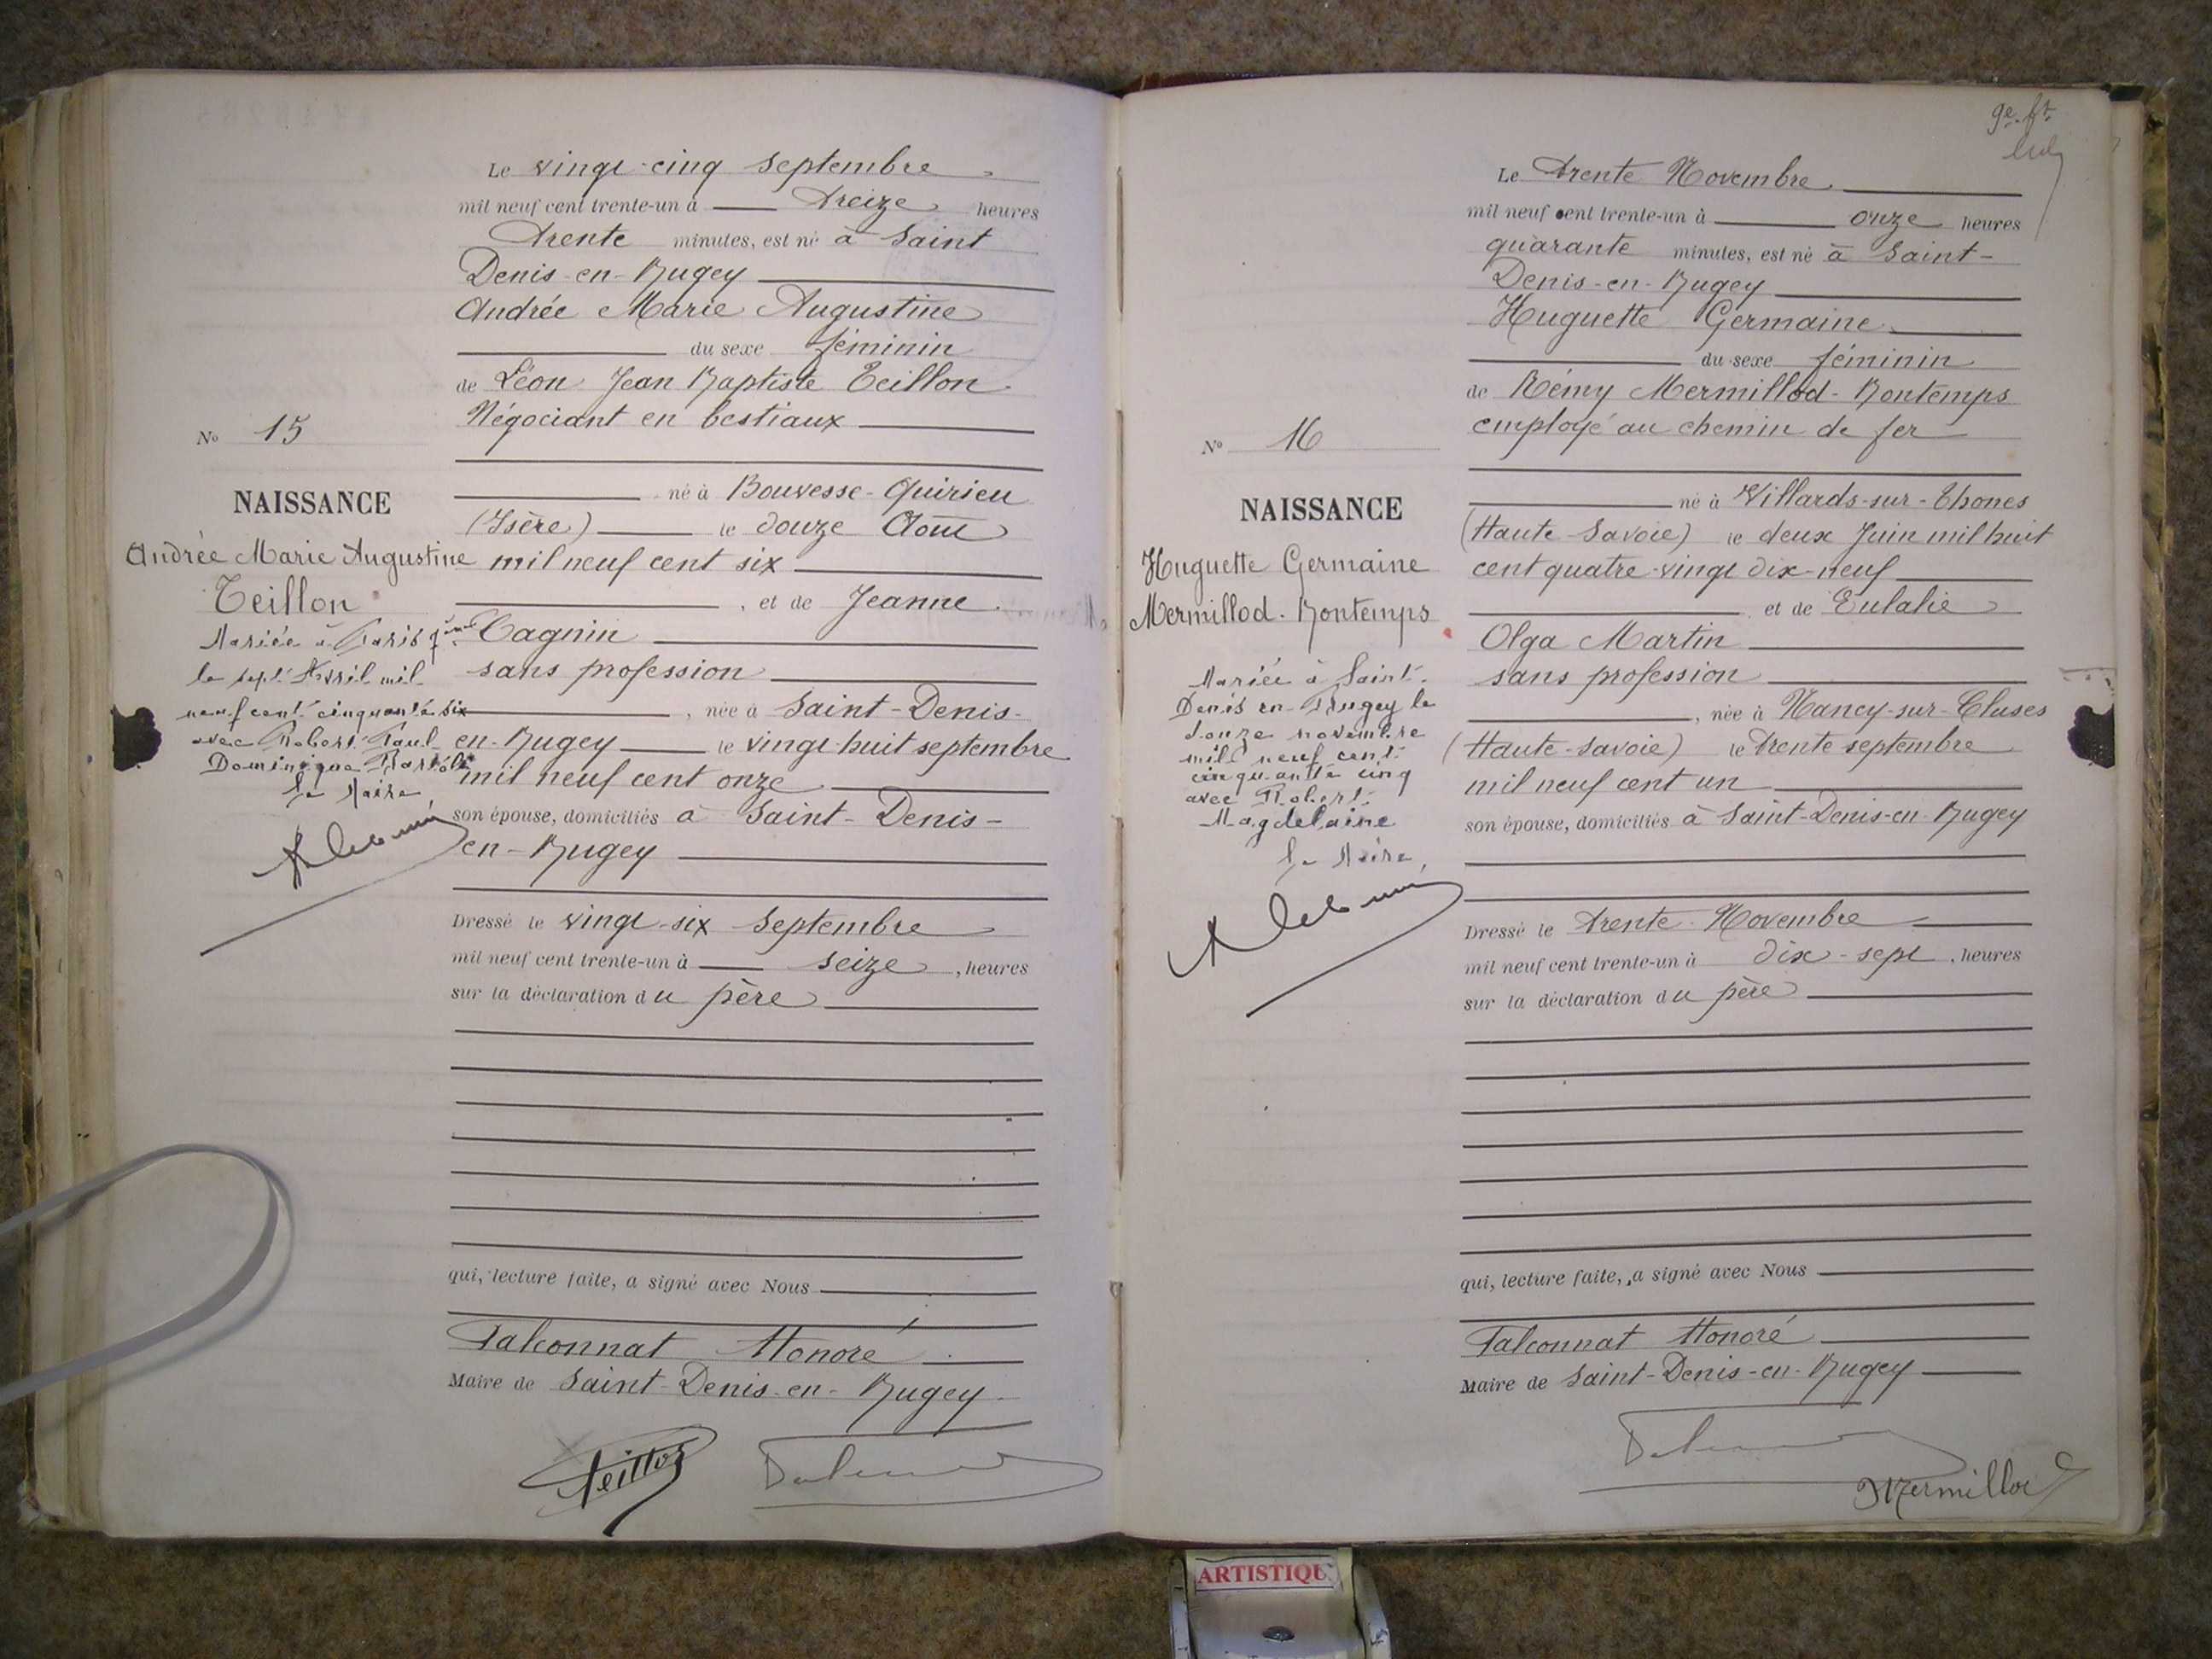 Le vingt-cinq septembre
mil neuf cent trente-un à treize heures
trente minutes, est né à Saint
Denis-en-Bugey
Andrée Marie Augustine
du sexe féminin
de Léon Jean Baptiste Teillon
Négociant en bestiaux
né à Bouvesse-Quirieu
(Isère) le douze Août
mil neuf cent six
, et de Jeanne
Cagnin
sans profession
, née à Saint-Denis-
en-Bugey le vingt-huit septembre
mil neuf cent onze
son épouse, domiciliés à Saint-Denis-
en-Bugey
Dressé le vingt-six septembre
mil neuf cent trente-un à seize, heures
sur la déclaration du père
qui, lecture faite, a signé avec Nous
Falconnat Honoré
Maire de Saint-Denis-en-Bugey
Teillon
No 15
NAISSANCE
Andrée Marie Augustine
Teillon
Mariée à Paris
le sept Avril mil
neuf cent cinquante six
avec Robert Paul
Dominique
Le Maire
ge ft
Le trente Novembre
mil neuf cent trente-un à onze heures
quarante minutes, est né à Saint-
Denis-en-Bugey
Huguette Germaine
du sexe féminin
de Rémy Mermillod-Bontemps
employé au chemin de fer
né à Villards-sur-Thones
(Haute Savoie) le deux Juin mil huit
cent quatre-vingt dix-neuf
et de Eulalie
Olga Martin
sans profession
, née à Nancy-sur-Cluses
(Haute-Savoie) le trente septembre
mil neuf cent un
son épouse, domiciliés à Saint-Denis-en-Bugey
Dressé le trente Novembre
mil neuf cent trente-un à dix-sept, heures
sur la déclaration du père
qui, lecture faite, a signé avec Nous
Falconnat Honoré
Maire de Saint-Denis-en-Bugey
Mermillod
No 16
NAISSANCE
Huguette Germaine
Mermillod-Bontemps
Mariée à Saint-
Denis en Bugey le
douze novembre
mil neuf cent
cinquante cinq
avec Robert
Magdelaine
Le Maire,
ARTISTIQU